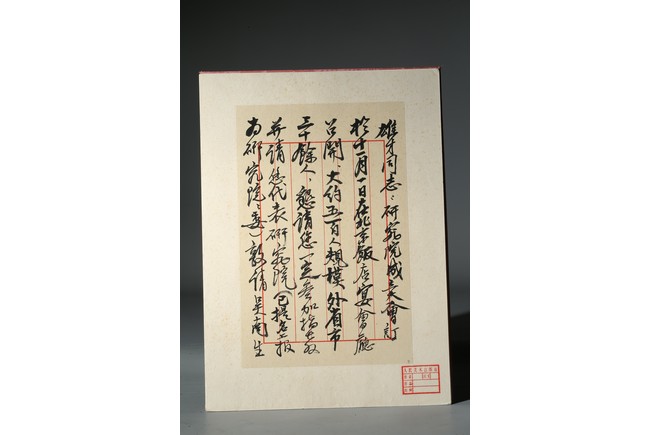 雄才同志：研究院成立大會訂
於十一月一日在北京飯店宴會廳
召開、大約五百人規模、外省市
三十餘人，懇請您一定參加指教
并請您代表研究院（已提名報
为研究院院委）敦請吳南生